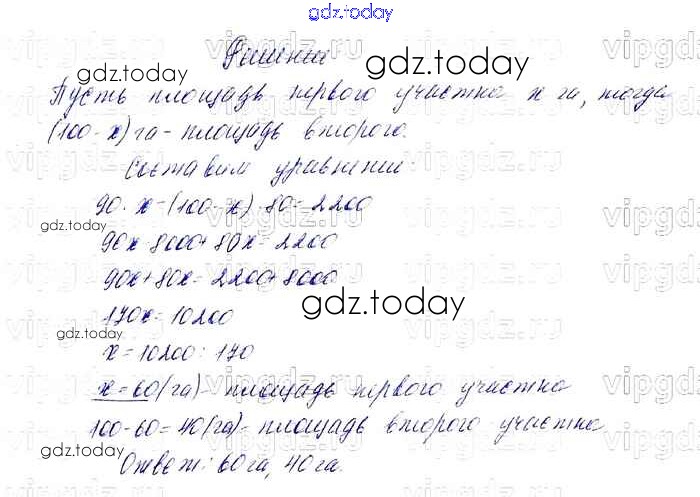 gdz.today
Решение
Пусть площадь первого участка x га, тогда
(100-x) га - площадь второго.
Составим уравнение:
90·x-(100-x)·80=2200
90x-8000+80x=2200
90x+80x=2200+8000
170x=10200
x=10200:170
x=60(га)- площадь первого участка
100-60=40(га)- площадь второго участка
Ответ: 60га, 40га.
gdz.today
gdz.today
gdz.today
gdz.today
gdz.today
gdz.today
vipgdz.ru